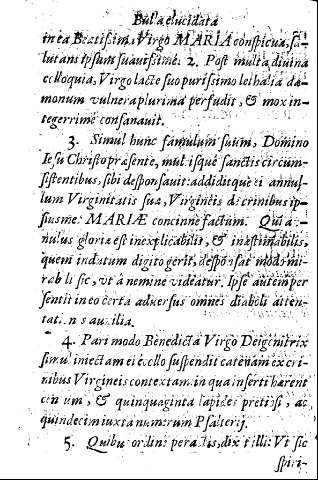 Bulla elucidata
in ea Beatissima Virgo MARIA conspicua, sa-
lutans ipsum suavissimè. 2. Post multa divina
colloquia, Virgo lacte suo purissimo lethalia dæ-
monum vulnera plurima perfudit, & mox in-
tegerrimè consanavit.
3. Simul hunc famulum suum, Domino
Iesu Christo præsente, multisque sanctis circum-
sistentibus, sibi desponsavit: additque ei annul-
lum Virginitatis suæ, Virgineis de crinibus ip-
siusmet MARIÆ concinnè factum. Qui an-
nulus gloriæ est inexplicabilis, & inæstimabilis,
quem indatum digito gerit, desponsat modo mi-
rabili sic, ut à nemine videatur. Ipse autem per
sentit in eo certa adversus omnes diaboli atten-
tationis auxilia.
4. Pari modo Benedicta Virgo Dei genitrix
simul iniectam ei è collo suspendit catenam ex cri-
nibus Virgineis contextam, in qua inserti hærent
centum, & quinquaginta lapides pretiosi, ac
quindecim iuxta numerum Psalterij.
5. Quibus ordine peractis, dixit illi: Ut sic
spiri-